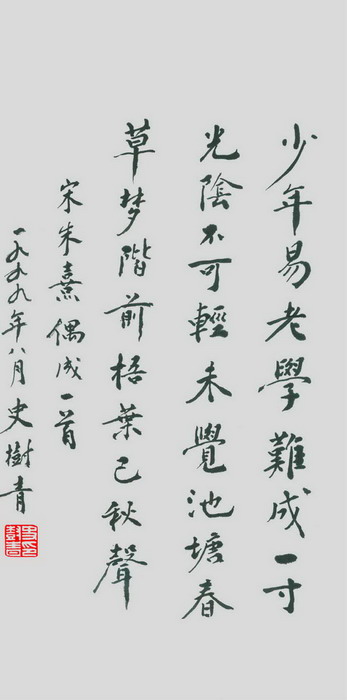 少年易老學難成一寸
光陰不可輕未覺池塘春
草梦階前梧葉已秋聲
宋朱熹偶成一首
一九九九年八月史樹青